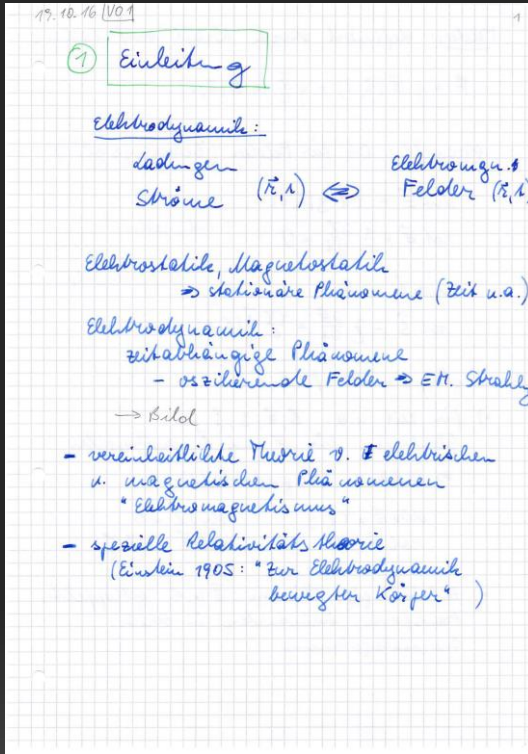 19.10.16 VO1
1
① Einleitung
Elektrodynamik:
Ladungen Elektromgn.
Ströme (r⃗,t) ⇔ Felder (r⃗,t)
Elektrostatik, Magnetostatik
⇒ stationäre Phänomene (Zeit u.a.)
Elektrodynamik:
zeitabhängige Phänomene
- oszilierende Felder ⇒ EM. Strahlg
→ Bild
- vereinheitlichte Theorie v. elektrischen
u. magnetischen Phänomenen
"Elektromagnetismus"
- spezielle Relativitätstheorie
(Einstein 1905: "Zur Elektrodynamik
bewegter Körper")